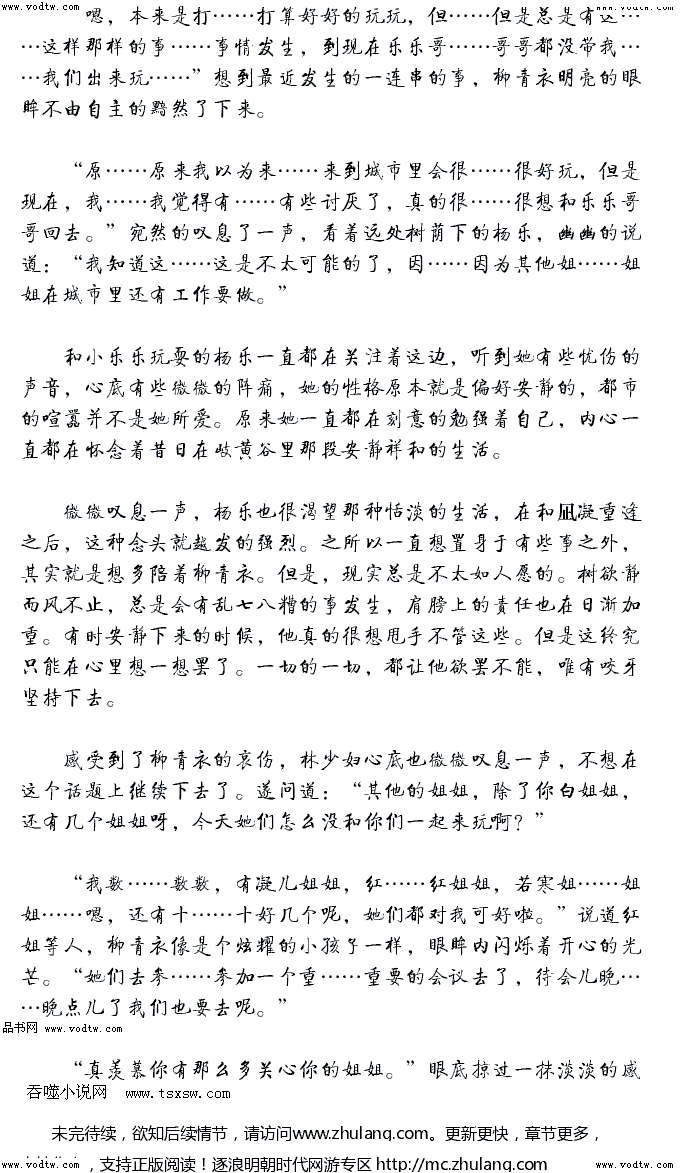 www.vodtw.com www.vodtw.com
嗯，本来是打……打算好好的玩玩，但……但是总是有这…
…这样那样的事……事情发生，到现在乐乐哥……哥哥都没带我…
…我们出来玩……”想到最近发生的一连串的事，柳青衣明亮的眼
眸不由自主的黯然了下来。
“原……原来我以为来……来到城市里会很……很好玩，但是
现在，我……我觉得有……有些讨厌了，真的很……很想和乐乐哥
哥回去。”宛然的叹息了一声，看着远处树荫下的杨乐，幽幽的说
道：“我知道这……这是不太可能的了，因……因为其他姐……姐
姐在城市里还有工作要做。”
和小乐乐玩耍的杨乐一直都在关注着这边，听到她有些忧伤的
声音，心底有些微微的阵痛，她的性格原本就是偏好安静的，都市
的喧嚣并不是她所爱。原来她一直都在刻意的勉强着自己，内心一
直都在怀念着昔日在岐黄谷里那段安静祥和的生活。
微微叹息一声，杨乐也很渴望那种恬淡的生活，在和凪凝重逢
之后，这种念头就越发的强烈。之所以一直想置身于有些事之外，
其实就是想多陪着柳青衣。但是，现实总是不太如人愿的。树欲静
而风不止，总是会有乱七八糟的事发生，肩膀上的责任也在日渐加
重。有时安静下来的时候，他真的很想甩手不管这些。但是这终究
只能在心里想一想罢了。一切的一切，都让他欲罢不能，唯有咬牙
坚持下去。
感受到了柳青衣的哀伤，林少妇心底也微微叹息一声，不想在
这个话题上继续下去了。遂问道：“其他的姐姐，除了你白姐姐，
还有几个姐姐呀，今天她们怎么没和你们一起来玩啊？”
“我数……数数，有凝儿姐姐，红……红姐姐，若寒姐……姐
姐……嗯，还有十……十好几个呢，她们都对我可好啦。”说道红
姐等人，柳青衣像是个炫耀的小孩子一样，眼眸内闪烁着开心的光
芒。“她们去参……参加一个重……重要的会议去了，待会儿晚…
…晚点儿了我们也要去呢。”
品书网 www.vodtw.com
“真羡慕你有那么多关心你的姐姐。”眼底掠过一抹淡淡的感
吞噬小说网 www.tsxsw.com
未完待续，欲知后续情节，请访问www.zhulang.com。更新更快，章节更多，
，支持正版阅读！逐浪明朝时代网游专区 http://mc.zhulang.com
www.vodtw.com www.vodtw.com